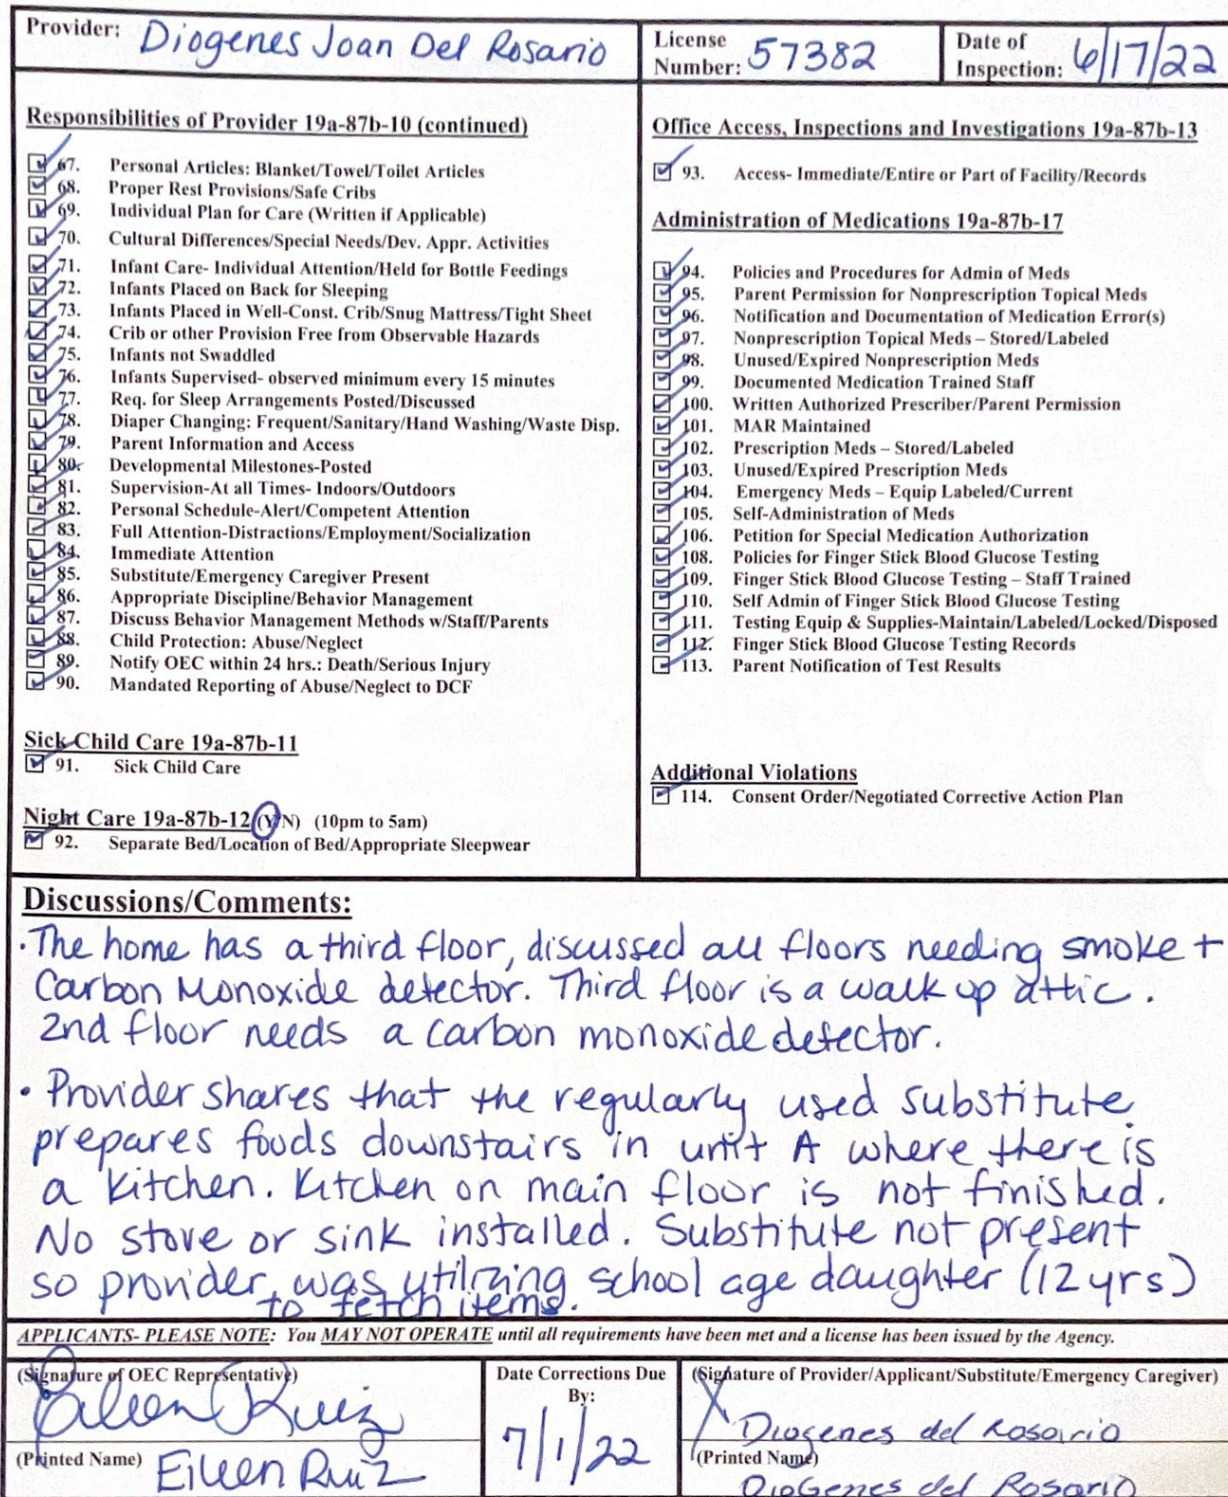 Provider: Diogenes Joan Del Rosario
License Number: 57382
Date of Inspection: 6/17/22
Responsibilities of Provider 19a-87b-10 (continued)
67. Personal Articles: Blanket/Towel/Toilet Articles
68. Proper Rest Provisions/Safe Cribs
69. Individual Plan for Care (Written if Applicable)
70. Cultural Differences/Special Needs/Dev. Appr. Activities
71. Infant Care- Individual Attention/Held for Bottle Feedings
72. Infants Placed on Back for Sleeping
73. Infants Placed in Well-Const. Crib/Snug Mattress/Tight Sheet
74. Crib or other Provision Free from Observable Hazards
75. Infants not Swaddled
76. Infants Supervised- observed minimum every 15 minutes
77. Req. for Sleep Arrangements Posted/Discussed
78. Diaper Changing: Frequent/Sanitary/Hand Washing/Waste Disp.
79. Parent Information and Access
80. Developmental Milestones-Posted
81. Supervision-At all Times- Indoors/Outdoors
82. Personal Schedule-Alert/Competent Attention
83. Full Attention-Distractions/Employment/Socialization
84. Immediate Attention
85. Substitute/Emergency Caregiver Present
86. Appropriate Discipline/Behavior Management
87. Discuss Behavior Management Methods w/Staff/Parents
88. Child Protection: Abuse/Neglect
89. Notify OEC within 24 hrs.: Death/Serious Injury
90. Mandated Reporting of Abuse/Neglect to DCF
Sick Child Care 19a-87b-11
91. Sick Child Care
Night Care 19a-87b-12 (Y/N) (10pm to 5am)
92. Separate Bed/Location of Bed/Appropriate Sleepwear
Office Access, Inspections and Investigations 19a-87b-13
93. Access- Immediate/Entire or Part of Facility/Records
Administration of Medications 19a-87b-17
94. Policies and Procedures for Admin of Meds
95. Parent Permission for Nonprescription Topical Meds
96. Notification and Documentation of Medication Error(s)
97. Nonprescription Topical Meds – Stored/Labeled
98. Unused/Expired Nonprescription Meds
99. Documented Medication Trained Staff
100. Written Authorized Prescriber/Parent Permission
101. MAR Maintained
102. Prescription Meds – Stored/Labeled
103. Unused/Expired Prescription Meds
104. Emergency Meds – Equip Labeled/Current
105. Self-Administration of Meds
106. Petition for Special Medication Authorization
108. Policies for Finger Stick Blood Glucose Testing
109. Finger Stick Blood Glucose Testing – Staff Trained
110. Self Admin of Finger Stick Blood Glucose Testing
111. Testing Equip & Supplies-Maintain/Labeled/Locked/Disposed
112. Finger Stick Blood Glucose Testing Records
113. Parent Notification of Test Results
Additional Violations
114. Consent Order/Negotiated Corrective Action Plan
Discussions/Comments:
· The home has a third floor, discussed all floors needing smoke +
Carbon Monoxide detector. Third floor is a walk up attic.
2nd floor needs a carbon monoxide detector.
· Provider shares that the regularly used substitute
prepares foods downstairs in unit A where there is
a kitchen. Kitchen on main floor is not finished.
No stove or sink installed. Substitute not present
so provider was utilizing school age daughter (12 yrs)
to fetch items.
APPLICANTS- PLEASE NOTE: You MAY NOT OPERATE until all requirements have been met and a license has been issued by the Agency.
(Signature of OEC Representative)
Eileen Ruiz
(Printed Name) Eileen Ruiz
Date Corrections Due
By:
7/1/22
(Signature of Provider/Applicant/Substitute/Emergency Caregiver)
X Diogenes del Rosario
(Printed Name)
DioGenes del Rosario